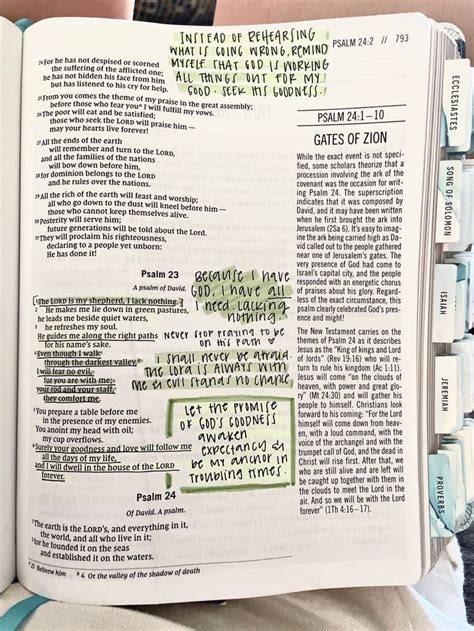 INSTEAD OF REHEARSING
WHAT IS GOING WRONG, REMIND
MYSELF THAT GOD IS WORKING
ALL THINGS OUT FOR MY
GOOD. SEEK HIS GOODNESS.
PSALM 24:2 // 793
24 For he has not despised or scorned
the suffering of the afflicted one;
he has not hidden his face from him
but has listened to his cry for help.
25 From you comes the theme of my praise in the great assembly;
before those who fear you a I will fulfill my vows.
26 The poor will eat and be satisfied;
those who seek the LORD will praise him—
may your hearts live forever!
27 All the ends of the earth
will remember and turn to the LORD,
and all the families of the nations
will bow down before him,
28 for dominion belongs to the LORD
and he rules over the nations.
29 All the rich of the earth will feast and worship;
all who go down to the dust will kneel before him—
those who cannot keep themselves alive.
30 Posterity will serve him;
future generations will be told about the Lord.
31 They will proclaim his righteousness,
declaring to a people yet unborn:
He has done it!
Psalm 23
A psalm of David.
1 The LORD is my shepherd, I lack nothing.
2 He makes me lie down in green pastures,
he leads me beside quiet waters,
3 he refreshes my soul.
He guides me along the right paths
for his name's sake.
4 Even though I walk
through the darkest valley,
I will fear no evil,
for you are with me;
your rod and your staff,
they comfort me.
5 You prepare a table before me
in the presence of my enemies.
You anoint my head with oil;
my cup overflows.
6 Surely your goodness and love will follow me
all the days of my life,
and I will dwell in the house of the LORD
forever.
BECAUSE I HAVE
GOD, I HAVE ALL
I NEED. LACKING
NOTHING.
NEVER STOP PRAYING TO BE
ON HIS PATH
I SHALL NEVER BE AFRAID.
THE LORD IS ALWAYS WITH
ME & EVIL STANDS NO CHANCE.
LET THE PROMISE
OF GOD'S GOODNESS
AWAKEN
EXPECTANCY &
BE MY ANCHOR IN
TROUBLING TIMES.
Psalm 24
Of David. A psalm.
1 The earth is the LORD's, and everything in it,
the world, and all who live in it;
2 for he founded it on the seas
and established it on the waters.
a 25 Hebrew him b 4 Or the valley of the shadow of death
PSALM 24:1–10
GATES OF ZION
While the exact event is not speci-
fied, some scholars theorize that a
procession involving the ark of the
covenant was the occasion for writ-
ing Psalm 24. The superscription
indicates that it was composed by
David, and it may have been written
when he first brought the ark into
Jerusalem (2Sa 6). It's easy to imag-
ine the ark being carried high as Da-
vid called out to the people gathered
near one of Jerusalem's gates. The
very presence of God had come to
Israel's capital city, and the people
responded with an energetic chorus
of praises about his glory. Regard-
less of the exact circumstance, this
psalm clearly celebrated God's pres-
ence and might!
The New Testament carries on the
themes of Psalm 24 as it describes
Jesus as the "King of kings and Lord
of lords" (Rev 19:16) who will re-
turn to rule his kingdom (Ac 1:11).
Jesus will come "on the clouds of
heaven, with power and great glo-
ry" (Mt 24:30) and will gather his
people to himself. Christians look
forward to his coming: "For the Lord
himself will come down from heav-
en, with a loud command, with the
voice of the archangel and with the
trumpet call of God, and the dead in
Christ will rise first. After that, we
who are still alive and are left will
be caught up together with them in
the clouds to meet the Lord in the
air. And so we will be with the Lord
forever" (1Th 4:16–17).
ECCLESIASTES
SONG OF SOLOMON
ISAIAH
JEREMIAH
PROVERBS